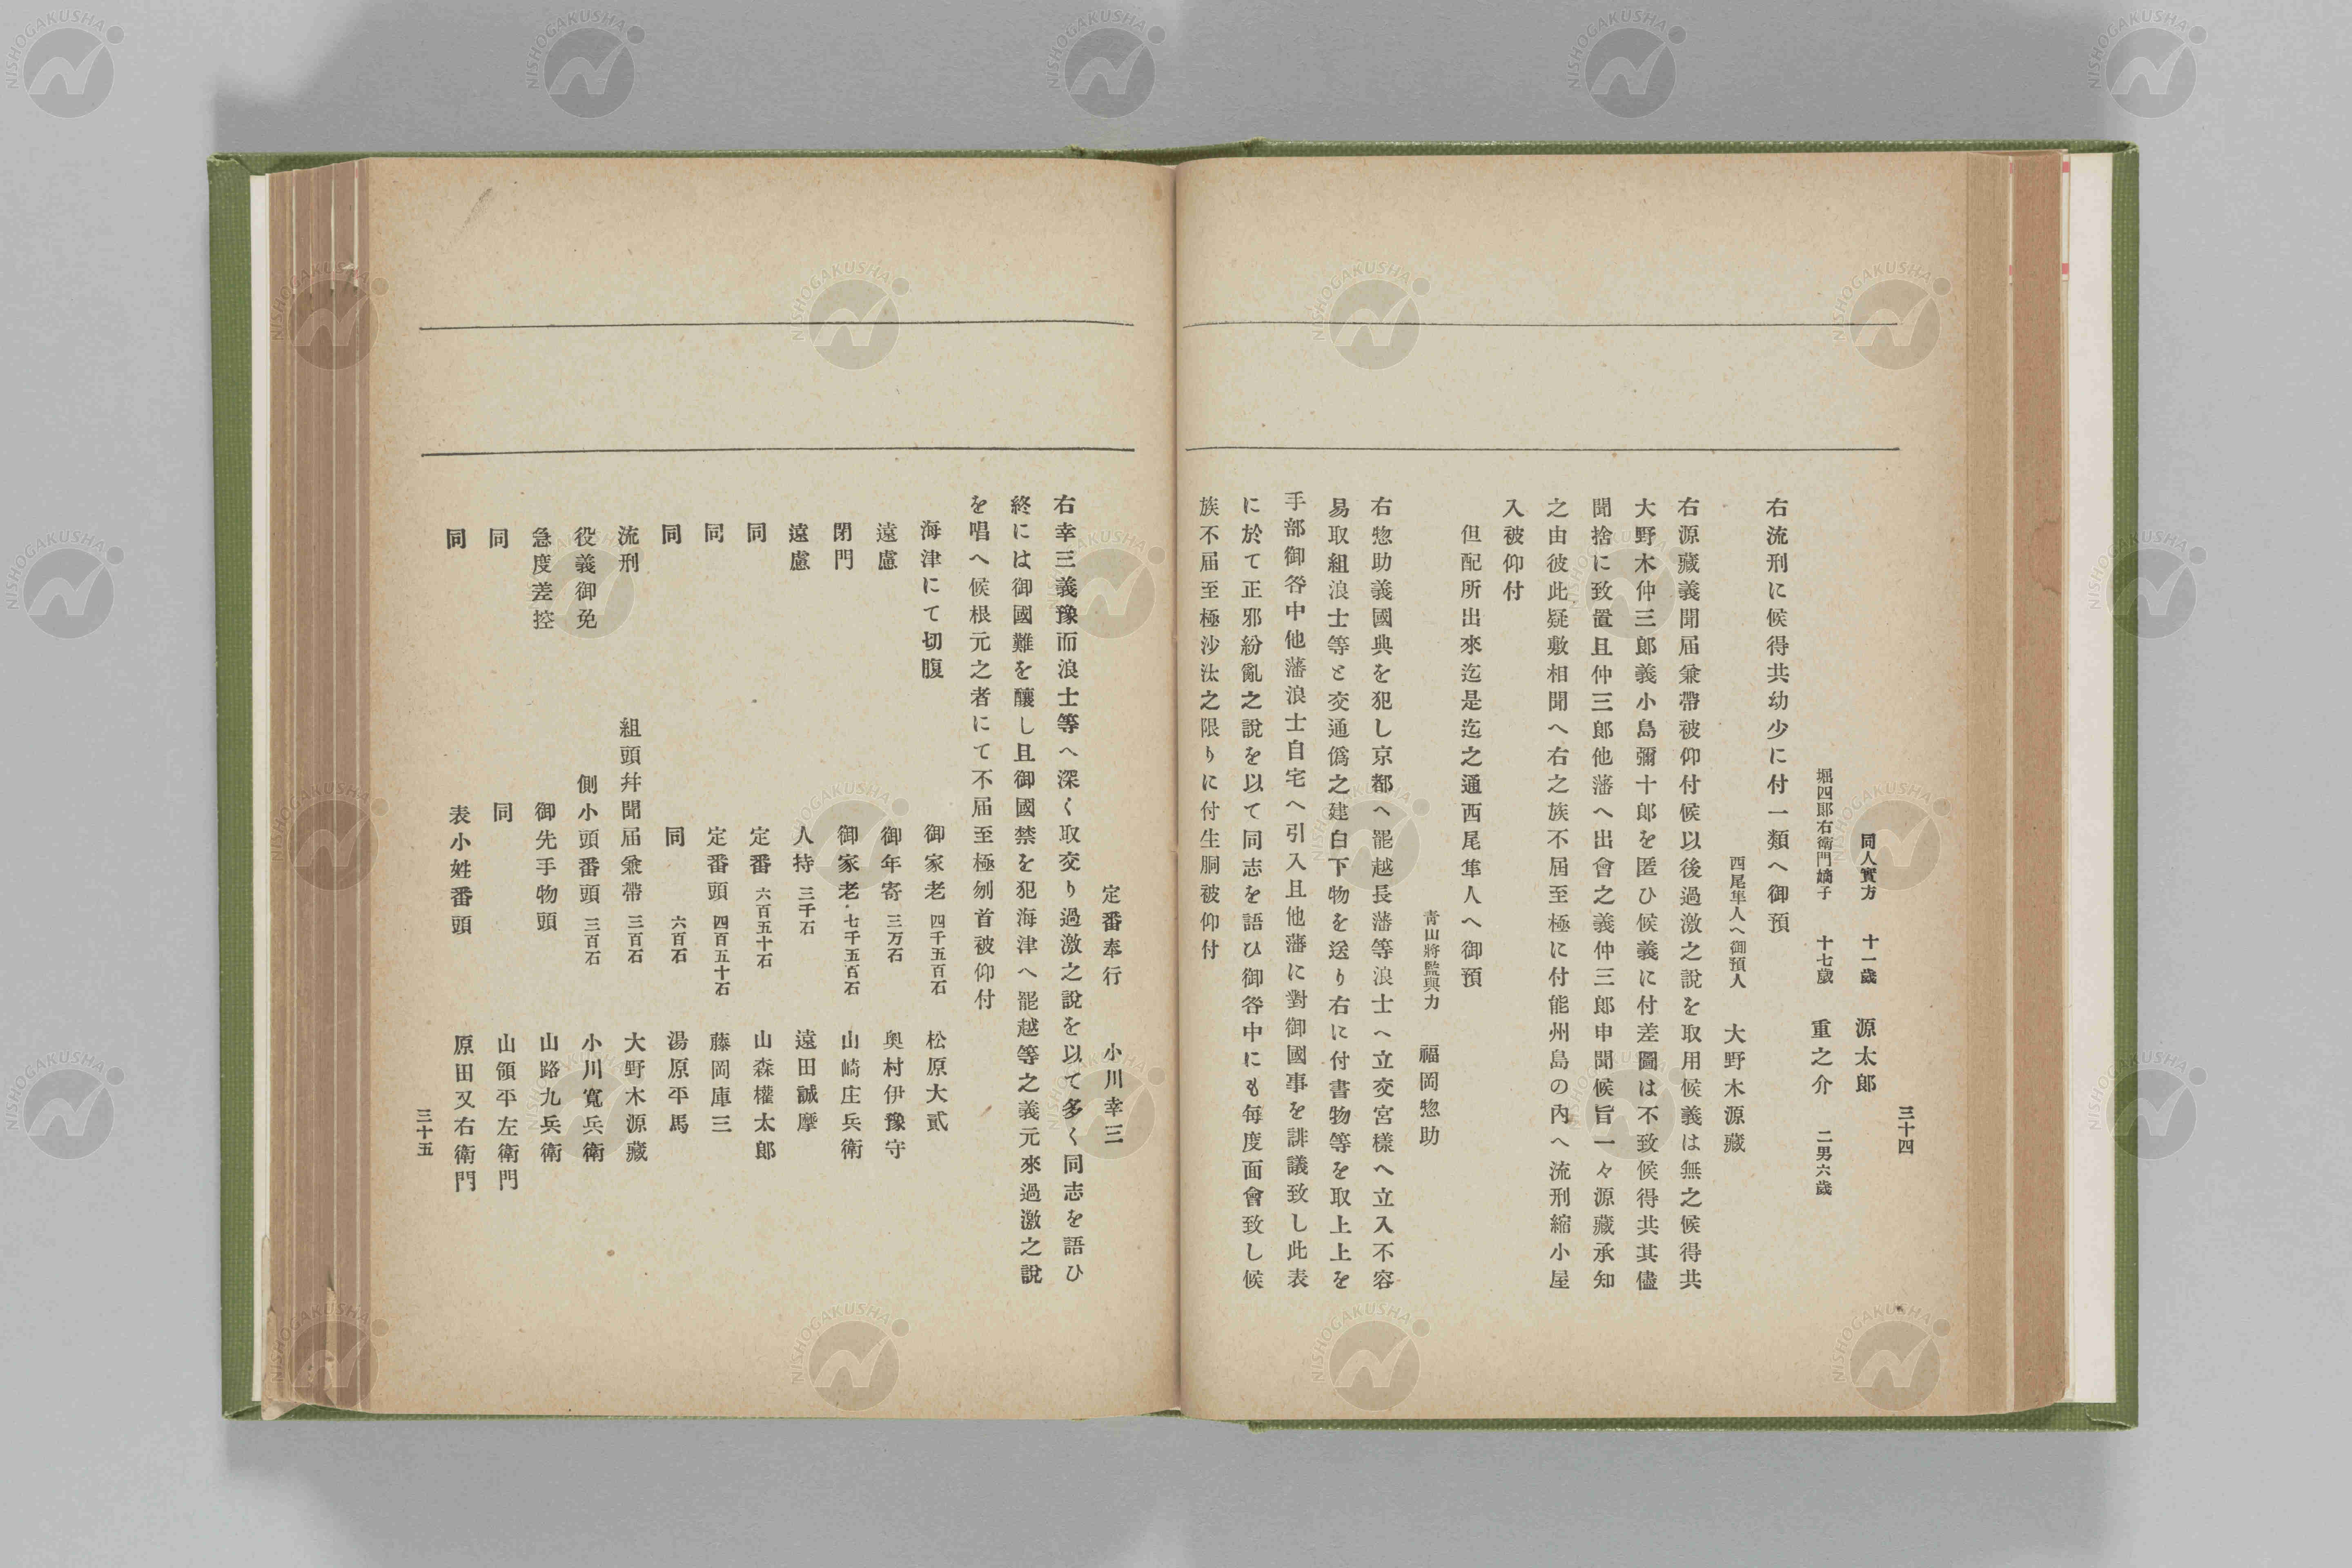 三十四
同人實方　十一歲　源太郎
堀四郎右衛門嫡子　十七歲　重之介　二男六歲
右流刑に候得共幼少に付一類へ御預
西尾隼人へ御預人　大野木源藏
右源藏義聞届兼帶被仰付候以後過激之說を取用候義は無之候得共
大野木仲三郎義小島彌十郎を匿ひ候義に付差圖は不致候得共其儘
聞捨に致置且仲三郎他藩へ出會之義仲三郎申聞候旨一々源藏承知
之由彼此疑敷相聞へ右之族不屆至極に付能州島の內へ流刑縮小屋
入被仰付
但配所出來迄是迄之通西尾隼人へ御預
靑山將監與力　福岡惣助
右惣助義國典を犯し京都へ罷越長藩等浪士へ立交宮樣へ立入不容
易取組浪士等と交通僞之建白下物を送り右に付書物等を取上上を
手部御咎中他藩浪士自宅へ引入且他藩に對御國事を誹議致し此表
に於て正邪紛亂之說を以て同志を語ひ御咎中にも每度面會致し候
族不届至極沙汰之限りに付生胴被仰付
定番奉行　小川幸三
右幸三義豫而浪士等へ深く取交り過激之說を以て多く同志を語ひ
終には御國難を釀し且御國禁を犯海津へ罷越等之義元來過激之說
を唱へ候根元之者にて不届至極刎首被仰付
海津にて切腹　御家老　四千五百石　松原大貳
遠慮　御年寄　三万石　奧村伊豫守
閉門　御家老　七千五百石　山崎庄兵衛
遠慮　人持　三千石　遠田誠摩
同　定番　六百五十石　山森權太郎
同　定番頭　四百五十石　藤岡庫三
同　同　六百石　湯原平馬
流刑　組頭幷聞届兼帶　三百石　大野木源藏
役義御免　側小頭番頭　三百石　小川寬兵衛
急度差控　御先手物頭　山路九兵衛
同　同　山領平左衛門
同　表小姓番頭　原田又右衛門
三十五
NISHOGAKUSHA